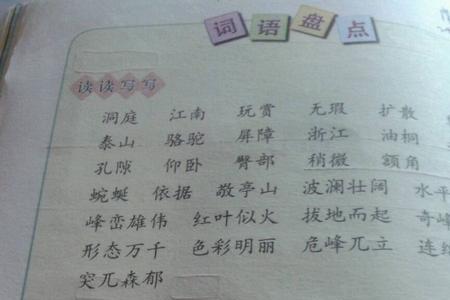 词语盘点
读读写写
洞庭 江南 玩赏 无瑕 扩散
泰山 骆驼 屏障 浙江 油桐
孔隙 仰卧 臀部 稍微 额角
蜿蜒 依据 敬亭山 波澜壮阔 水平
峰峦雄伟 红叶似火 拔地而起 奇峰
形态万千 色彩明丽 危峰兀立 连
突兀森郁